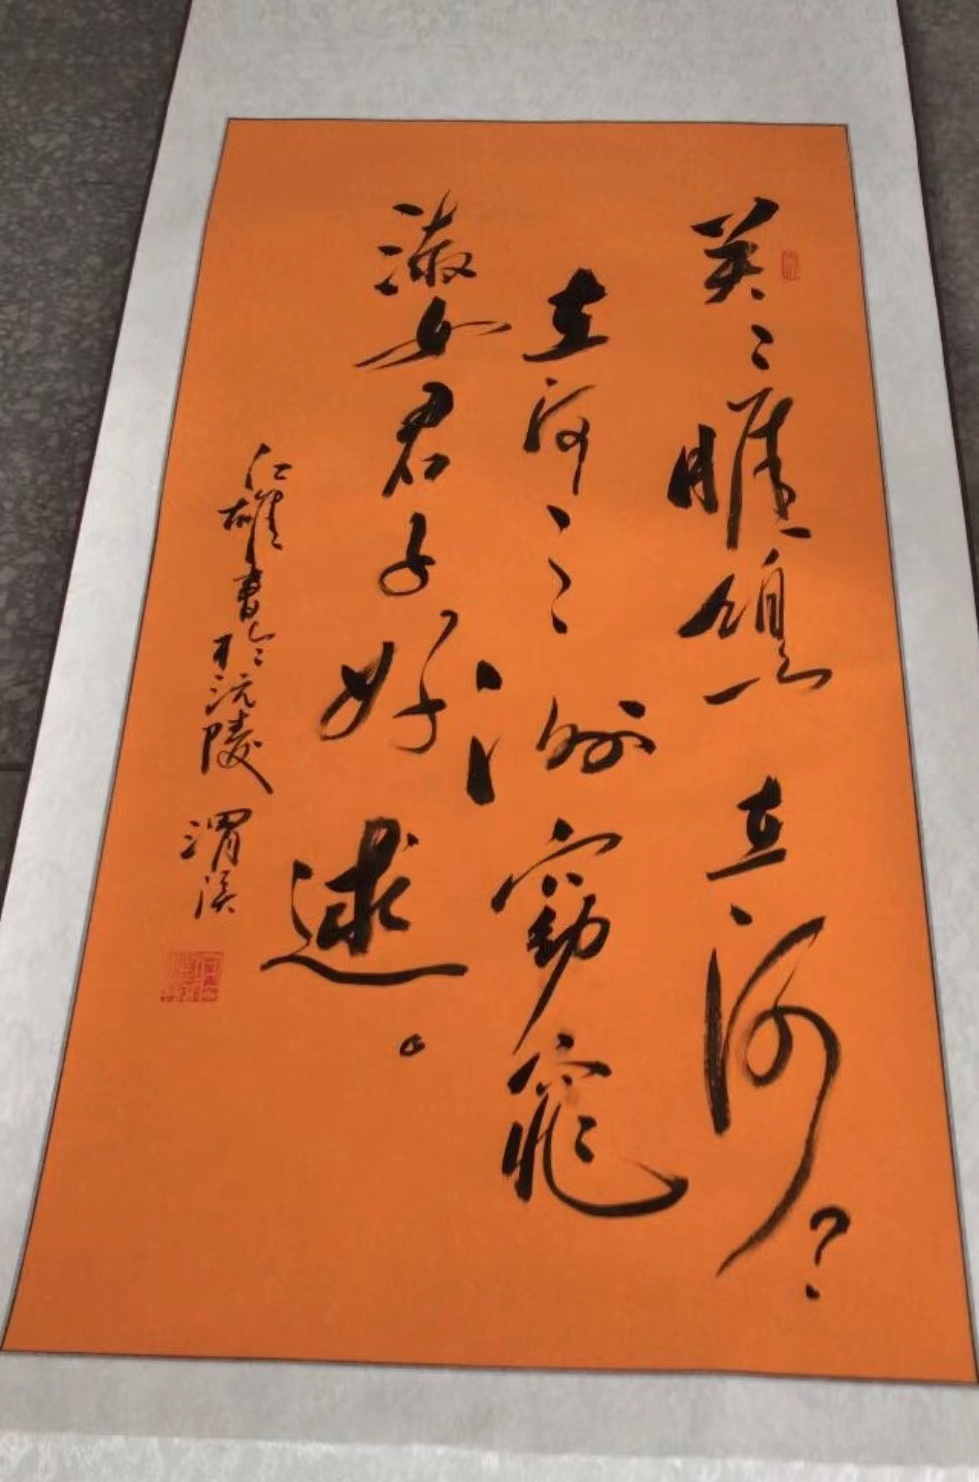 关〻雎鸠在河?
在河之洲窈窕
淑女君子好逑。
雄書於沅陵 渭溪